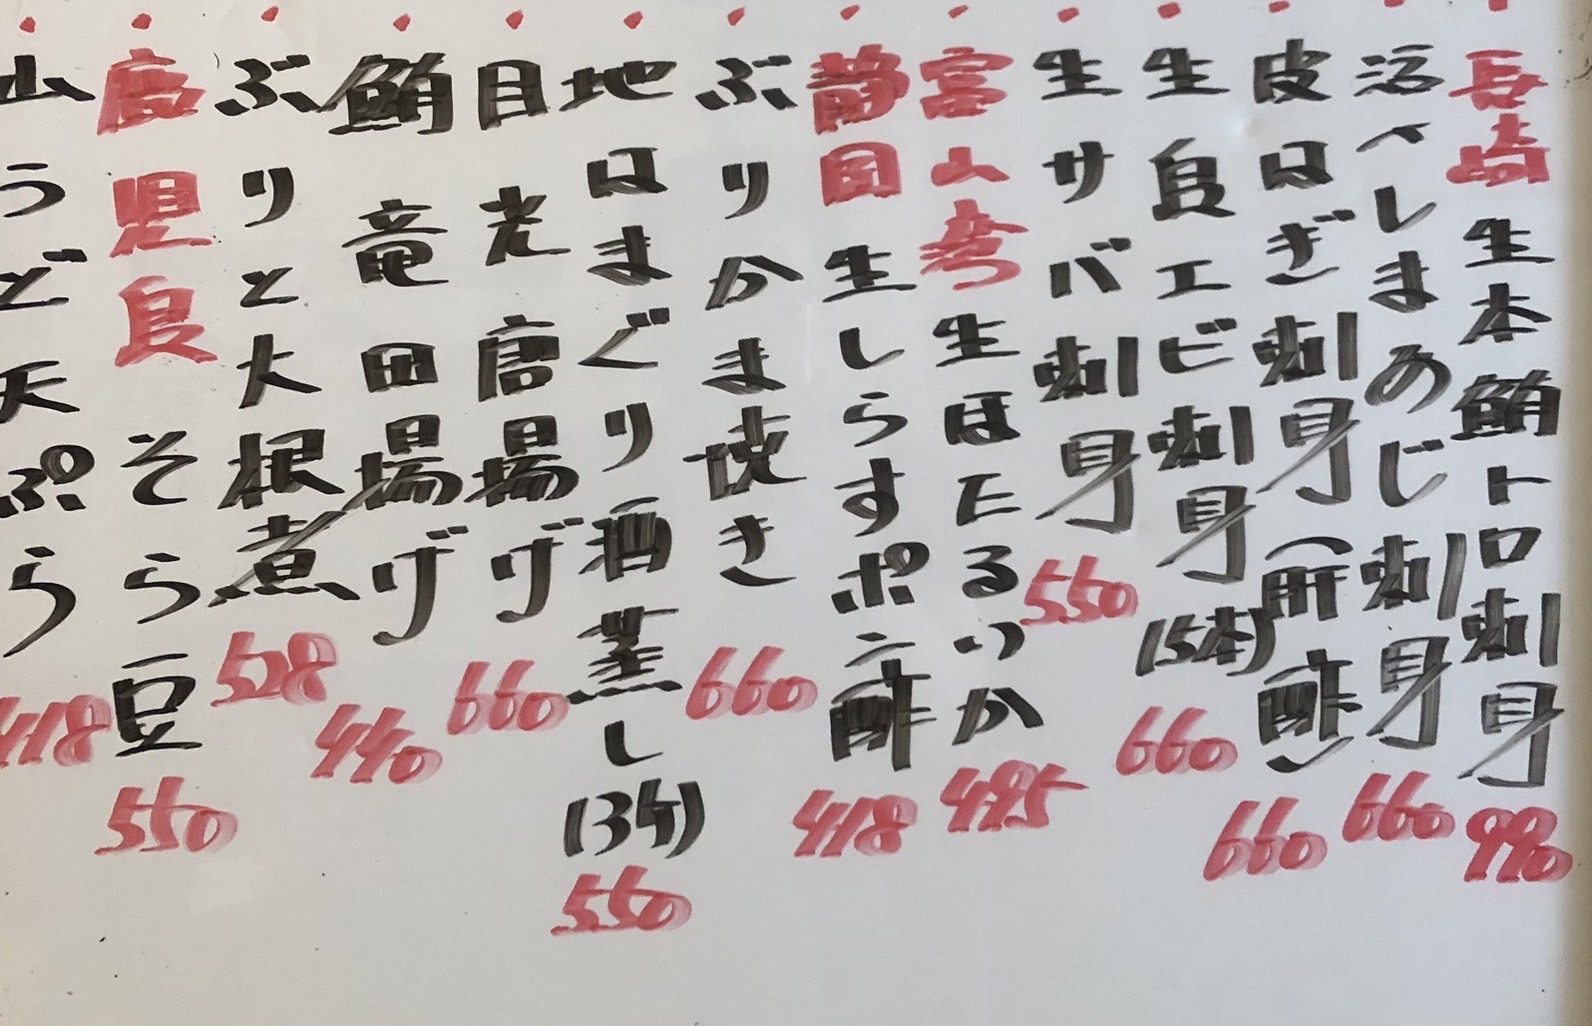 長崎 生本鮪トロ刺身 990
活〆しまあじ刺身 660
皮はぎ刺身(肝酢) 660
生白エビ刺身(5本) 660
生サバ刺身 550
富山産 生ほたるいか 495
静岡 生しらすポン酢 418
ぶりかま焼き 660
地はまぐり酒蒸し(3ケ) 550
目光唐揚げ 660
鮪竜田揚げ 440
ぶりと大根煮 528
鹿児島 そら豆 550
山うど天ぷら 418